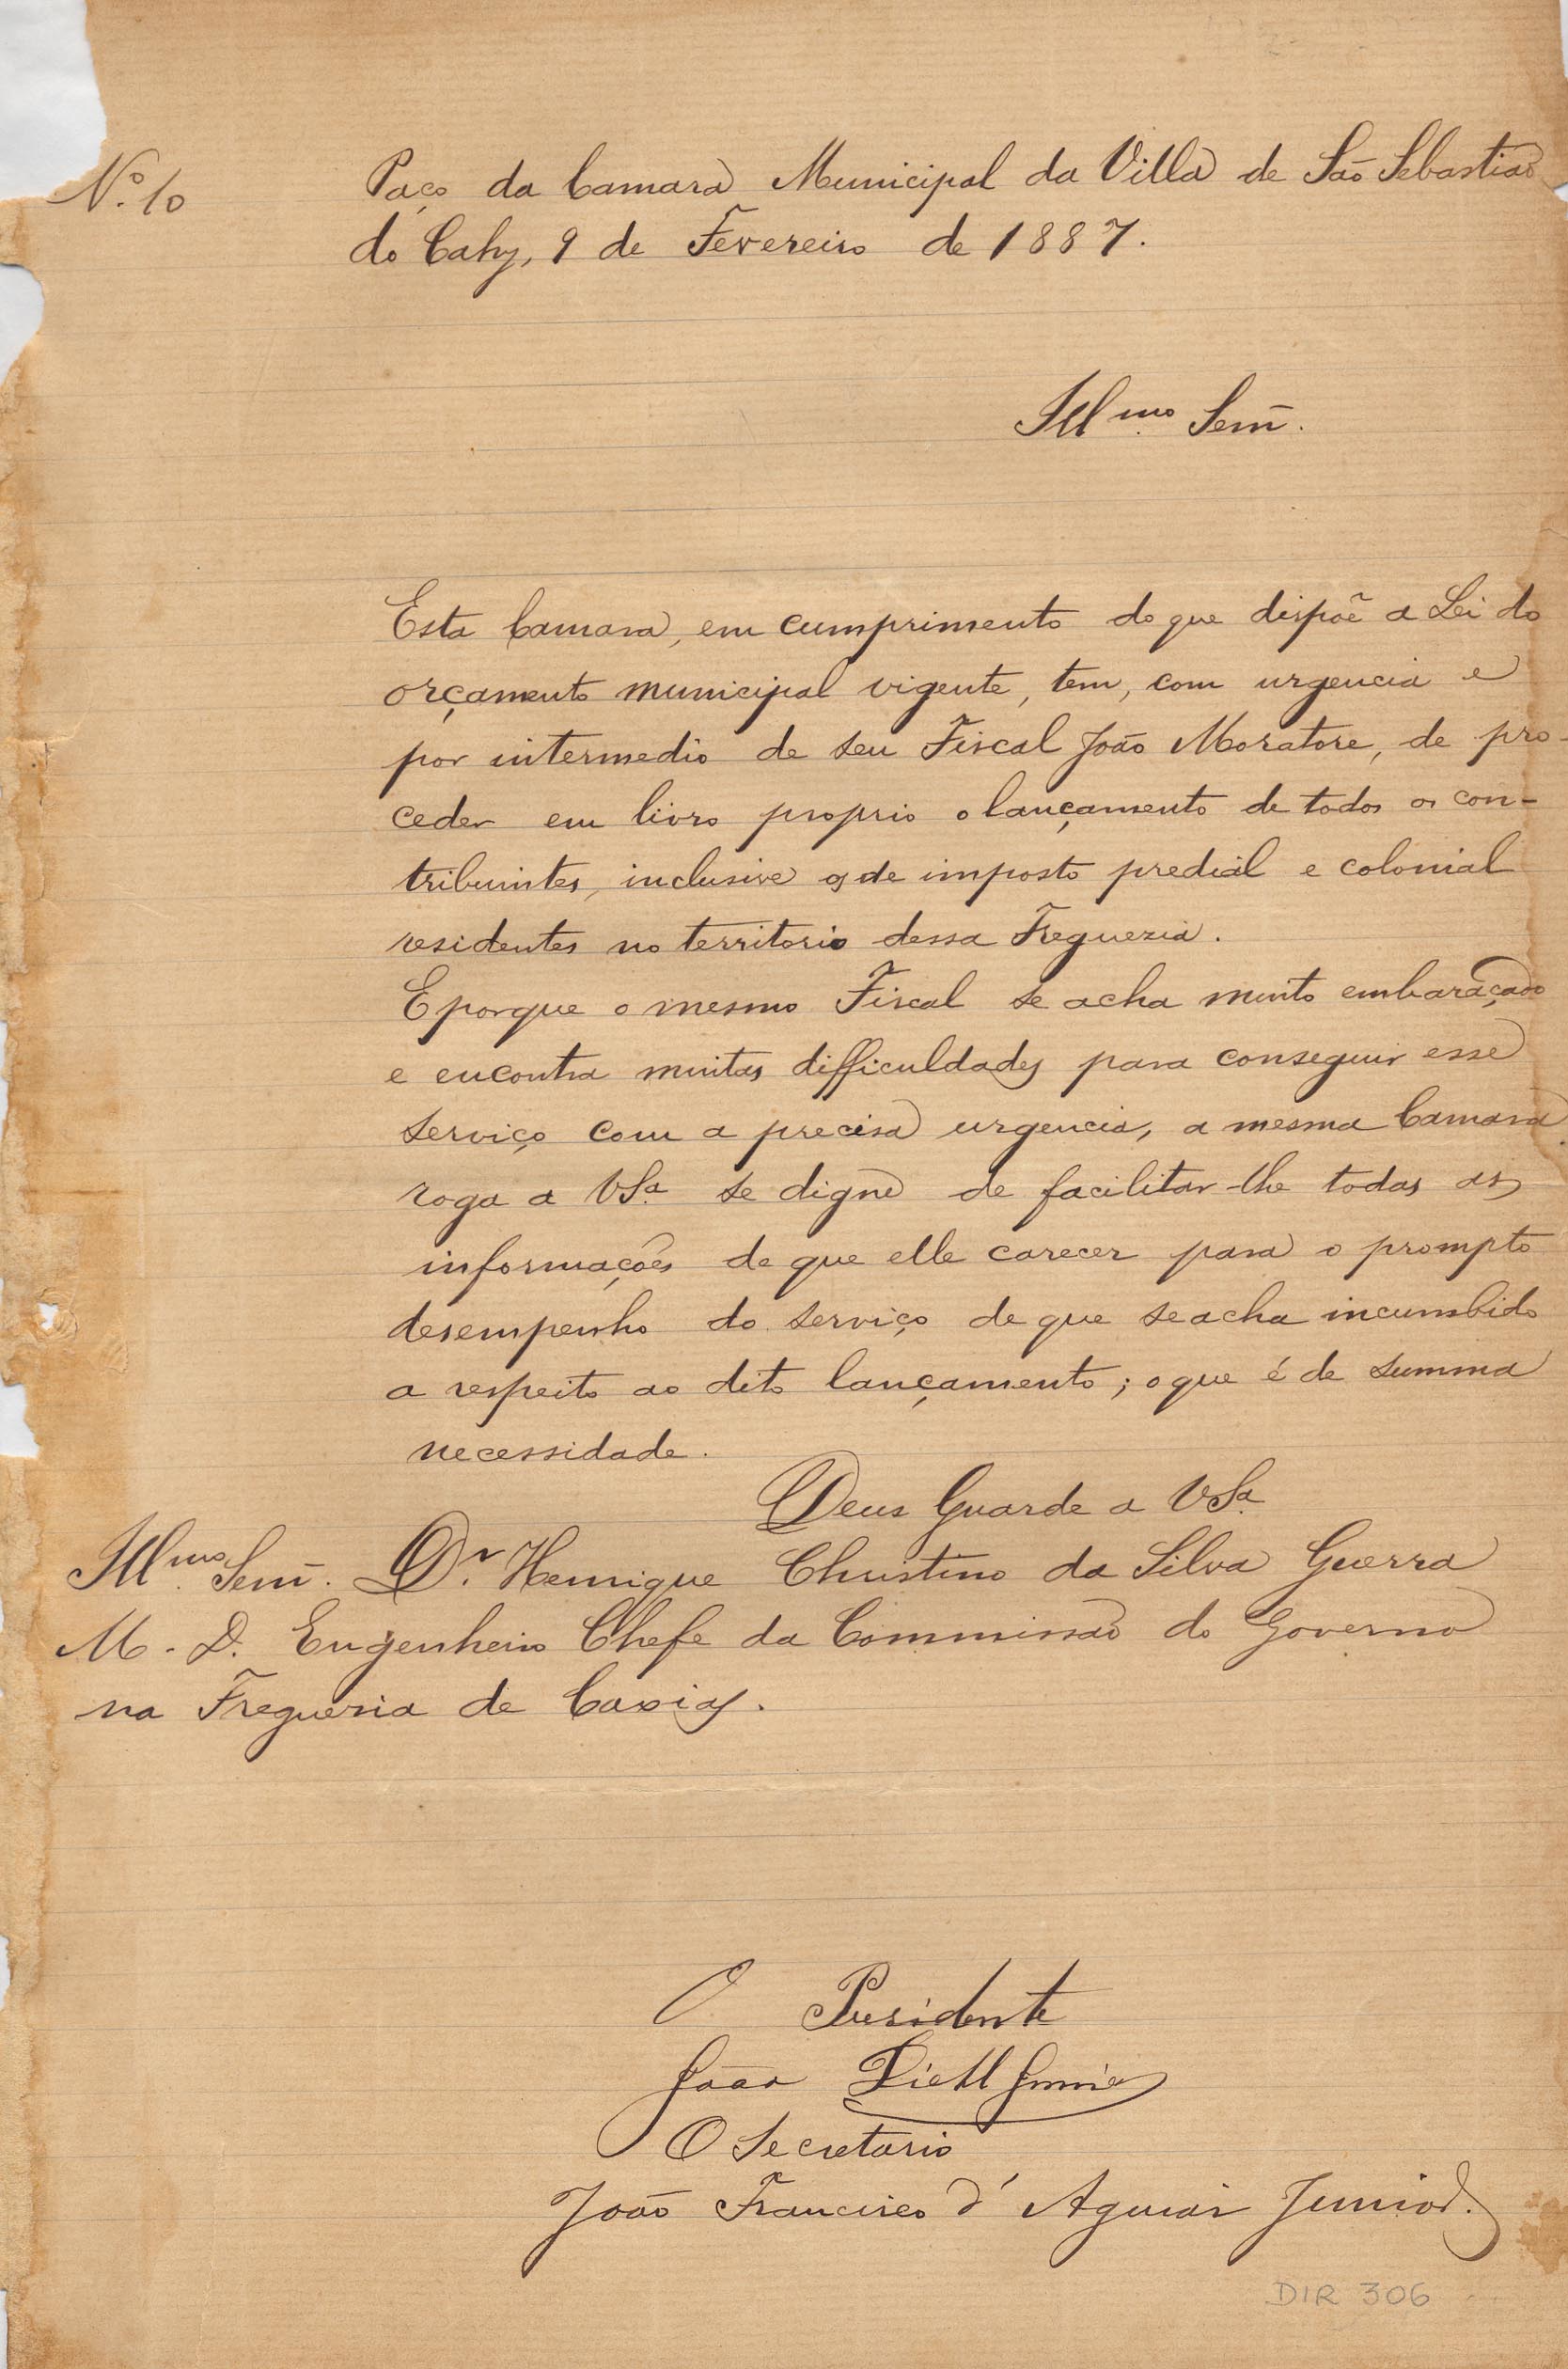 Nº. 10
Paço da Camara Municipal da Villa de São Sebastião
do Cahy, 9 de Fevereiro de 1887.
Illmo Senr̃.
Esta Camara, em cumprimento do que dispõe a Lei do
orçamento municipal vigente, tem, com urgencia e
por intermedio de seu Fiscal João Moratore, de pro-
ceder em livro proprio o lançamento de todos os con-
tribuintes, inclusive os de imposto predial e colonial
residentes no territorio dessa Freguezia.
E porque o mesmo Fiscal se acha muito embaraçado
e encontra muitas difficuldades para conseguir esse
serviço com a precisa urgencia, a mesma Camara
roga a VSa. se digne de facilitar-lhe todas as
informações de que elle carecer para o prompto
desempenho do serviço de que se acha incumbido
a respeito ao dito lançamento; o que é de summa
necessidade.
Deus Guarde a VSa.
Illmo. Senr̃. Dr. Henrique Christino da Silva Guerra
M. D. Engenheiro Chefe da Commissão do Governo
na Freguesia de Caxias.
O Presidente
João Diehl Junior
O Secretario
João Francisco d'Aguiar Junior.
DIR 306